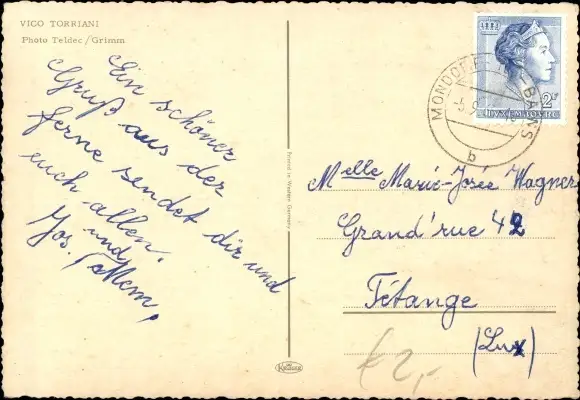 VICO TORRIANI
Photo Teldec/Grimm
Ein schöner
Gruß aus der
Ferne sendet dir und
euch allen.
und
Jos.
Printed in Western Germany
Krüger
MONDORF-
-BAINS
b
2F
LUXEMBOURG
Melle Marie-Josée Wagner
Grand'rue 42
Tétange
(Lux)
€2,-